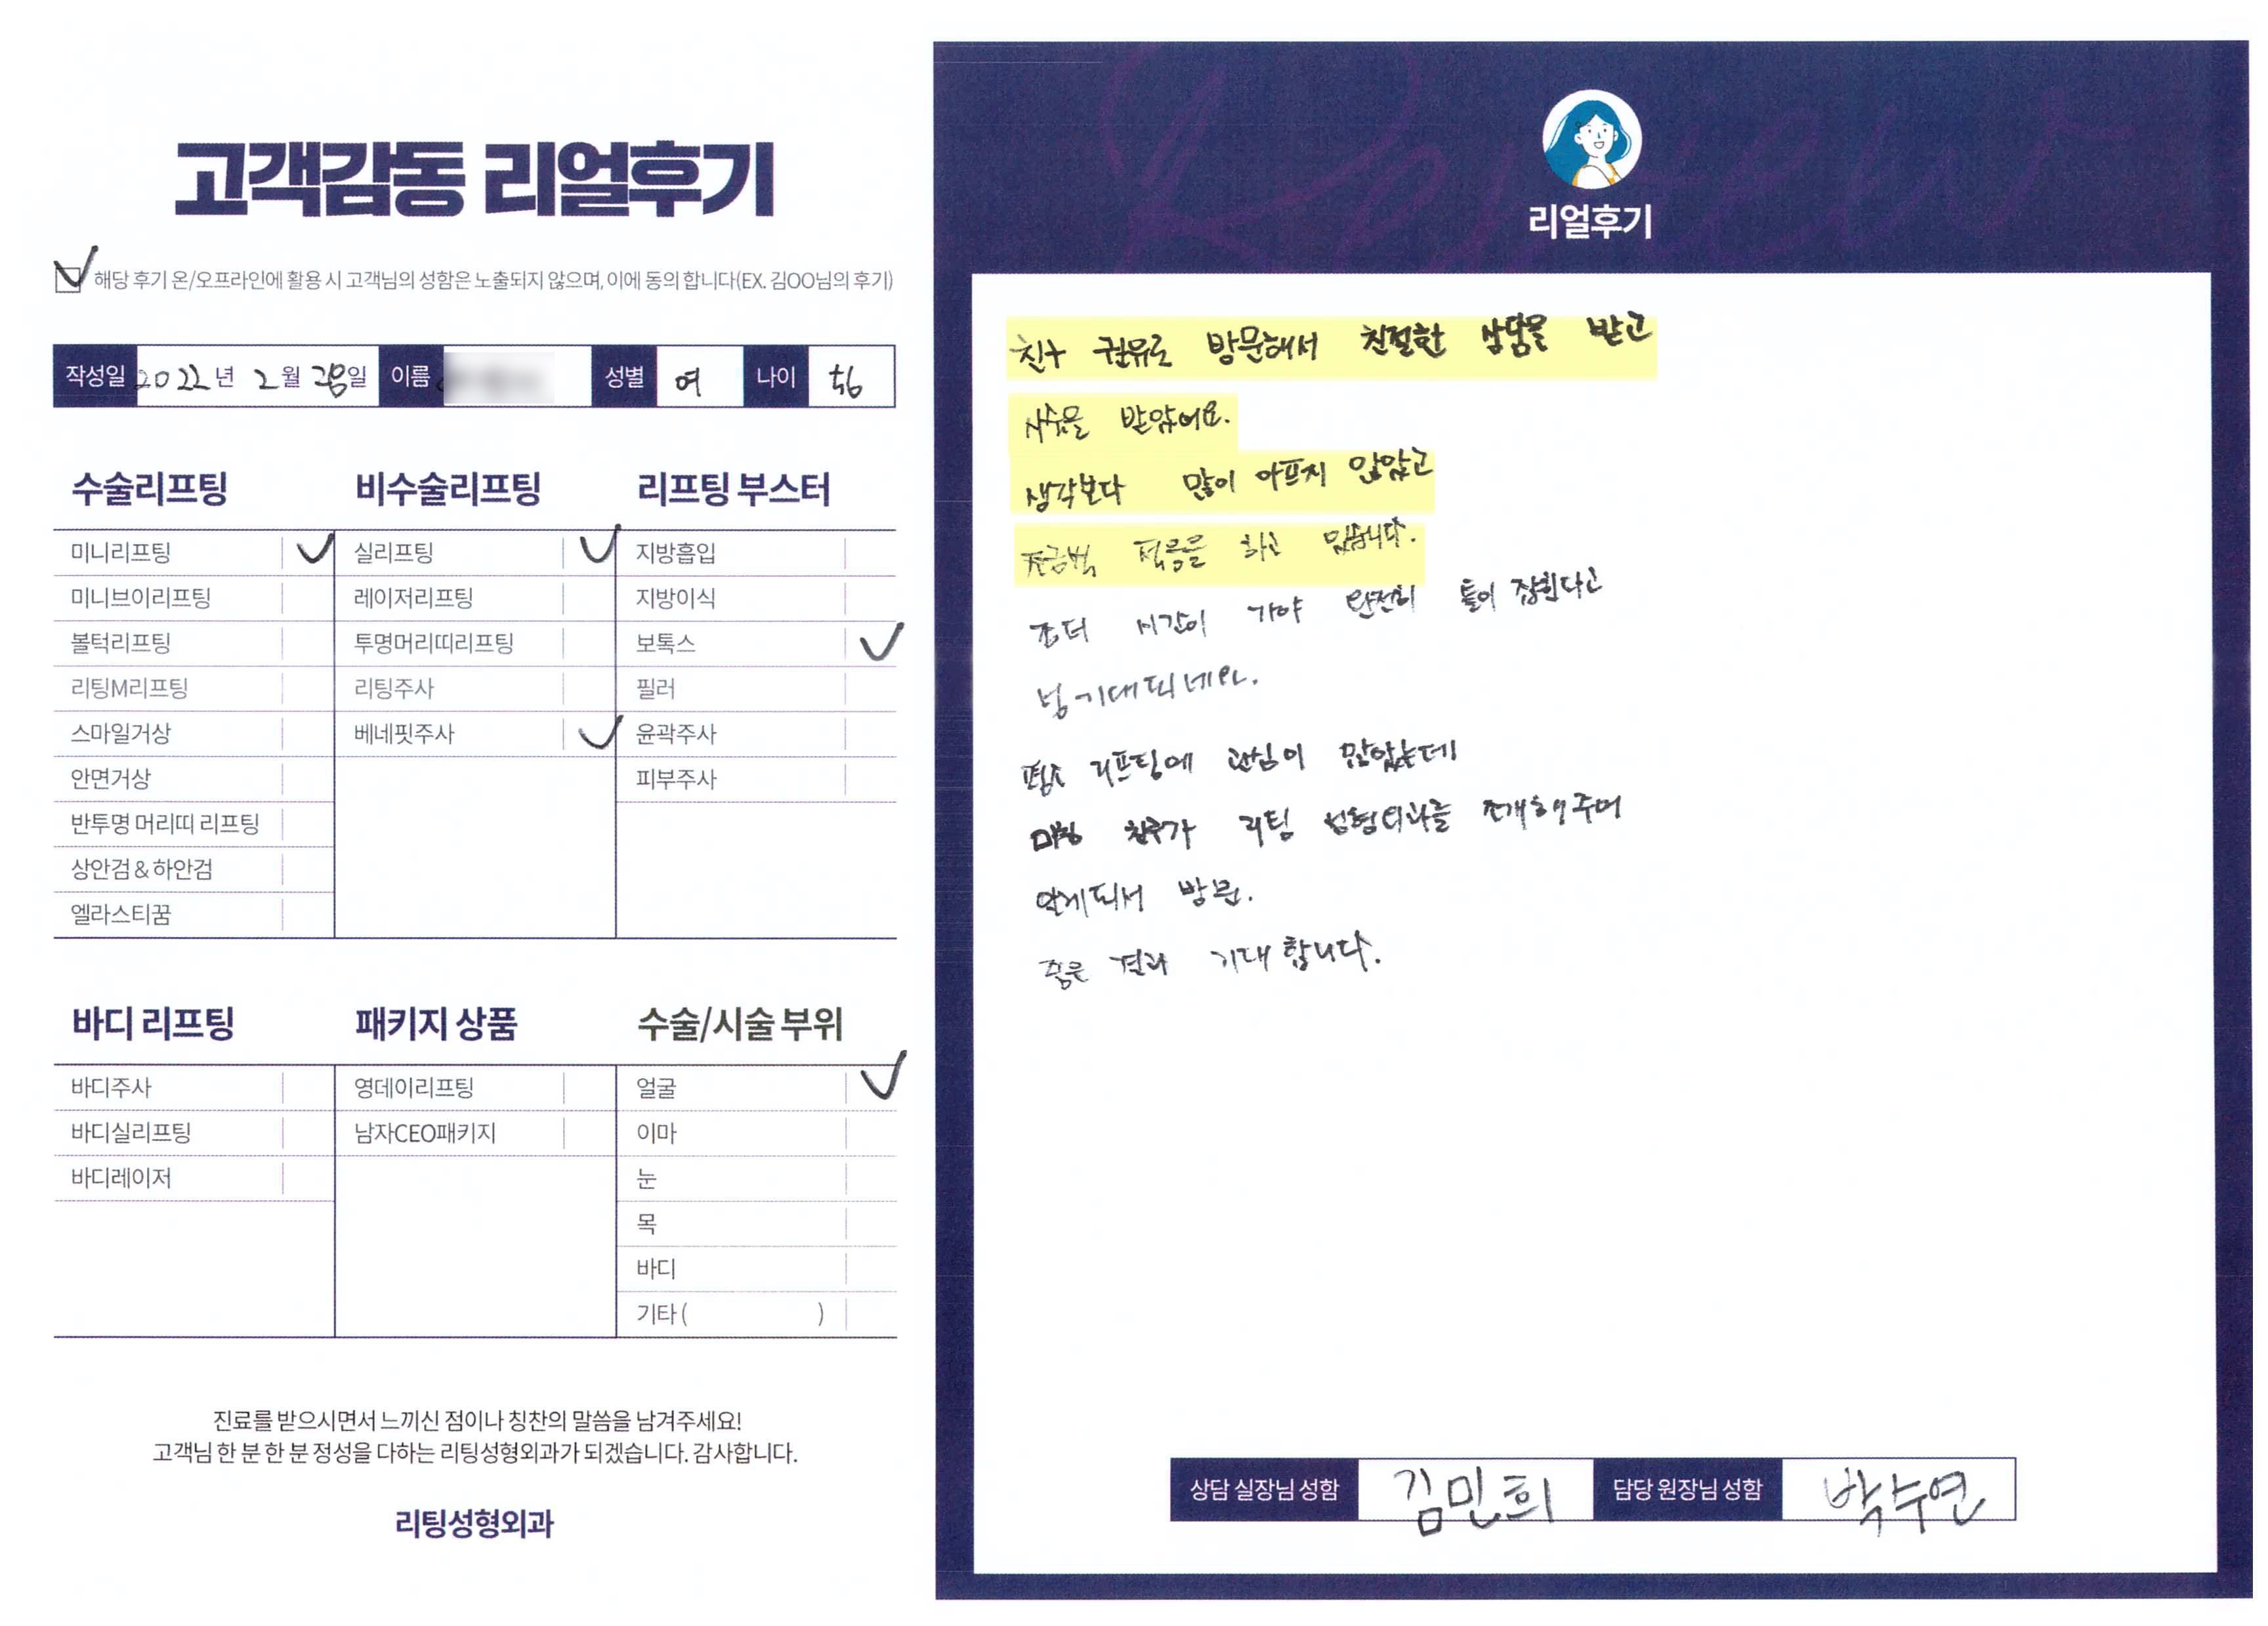 고객감동 리얼후기
해당 후기 온/오프라인에 활용 시 고객님의 성함은 노출되지 않으며, 이에 동의 합니다(EX. 김OO님의 후기)
작성일 2022년 2월 28일 이름 성별 여 나이 56
수술리프팅
미니리프팅
미니브이리프팅
볼턱리프팅
리팅M리프팅
스마일거상
안면거상
반투명 머리띠 리프팅
상안검 & 하안검
엘라스티꿈
비수술리프팅
실리프팅
레이저리프팅
투명머리띠리프팅
리팅주사
베네핏주사
리프팅 부스터
지방흡입
지방이식
보톡스
필러
윤곽주사
피부주사
바디 리프팅
바디주사
바디실리프팅
바디레이저
패키지 상품
영데이리프팅
남자CEO패키지
수술/시술 부위
얼굴
이마
눈
목
바디
기타 ( )
진료를 받으시면서 느끼신 점이나 칭찬의 말씀을 남겨주세요!
고객님 한 분 한 분 정성을 다하는 리팅성형외과가 되겠습니다. 감사합니다.
리팅성형외과
리얼후기
친구 권유로 방문해서 친절한 상담을 받고
시술을 받았어요.
생각보다 많이 아프지 않았고
조금씩 적응을 하고 있습니다.
좀더 시간이 가야 완전히 틀이 잡힌다고
넘 기대되네요.
평소 리프팅에 관심이 많았는데
마침 친구가 리팅 성형외과를 소개해주어
알게되서 방문.
좋은 결과 기대합니다.
상담 실장님 성함 김민희 담당 원장님 성함 박수연